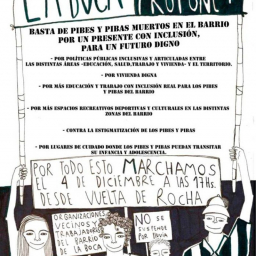 LA BOCA PROPONE
BASTA DE PIBES Y PIBAS MUERTOS EN EL BARRIO
POR UN PRESENTE CON INCLUSIÓN,
PARA UN FUTURO DIGNO
- POR POLÍTICAS PÚBLICAS INCLUSIVAS Y ARTICULADAS ENTRE
LAS DISTINTAS ÁREAS -EDUCACIÓN, SALUD, TRABAJO Y VIVIENDA- Y EL TERRITORIO.
- POR VIVIENDA DIGNA
- POR MÁS EDUCACIÓN Y TRABAJO CON INCLUSIÓN REAL PARA LOS PIBES
Y PIBAS DEL BARRIO
- POR MÁS ESPACIOS RECREATIVOS DEPORTIVAS Y CULTURALES EN LAS DISTINTAS
ZONAS DEL BARRIO
- CONTRA LA ESTIGMATIZACIÓN DE LOS PIBES Y PIBAS
- POR LUGARES DE CUIDADO DONDE LOS PIBES Y PIBAS PUEDAN TRANSITAR
SU INFANCIA Y ADOLESCENCIA.
POR TODO ESTO MARCHAMOS
EL 4 DE DICIEMBRE A LAS 17HS.
DESDE VUELTA DE ROCHA
ORGANIZACIONES
VECINOS Y
TRABAJADORES
DEL BARRIO
DE LA BOCA
NO SE
SUSPENDE POR
LLUVIA